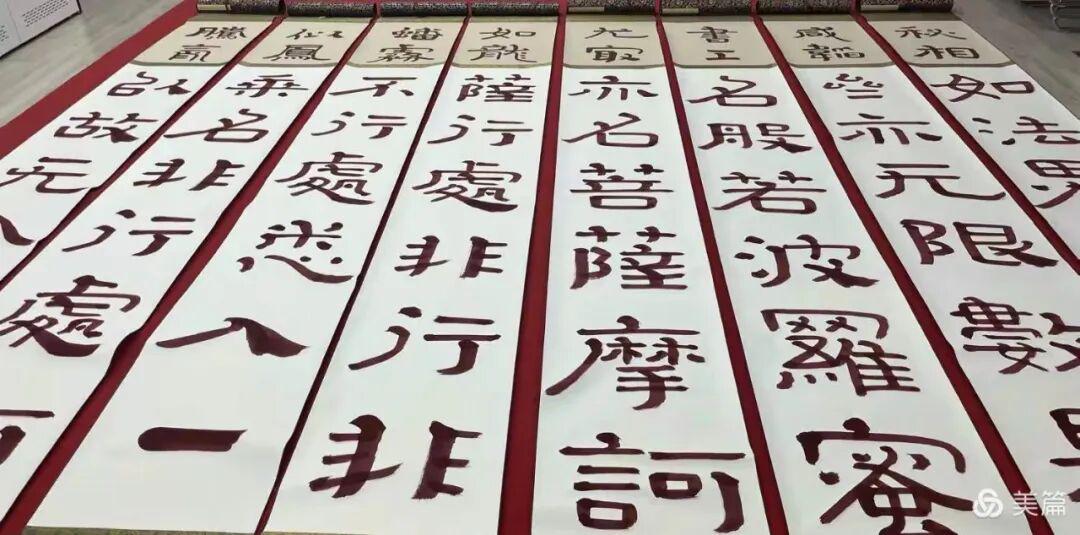 如法界
亦无限數界
書工
名般若波羅蜜
亦名菩薩摩訶
如龍
薩行處非行非
不行處悉入一
似鳳
乘名非行處
騰
故无入
美篇